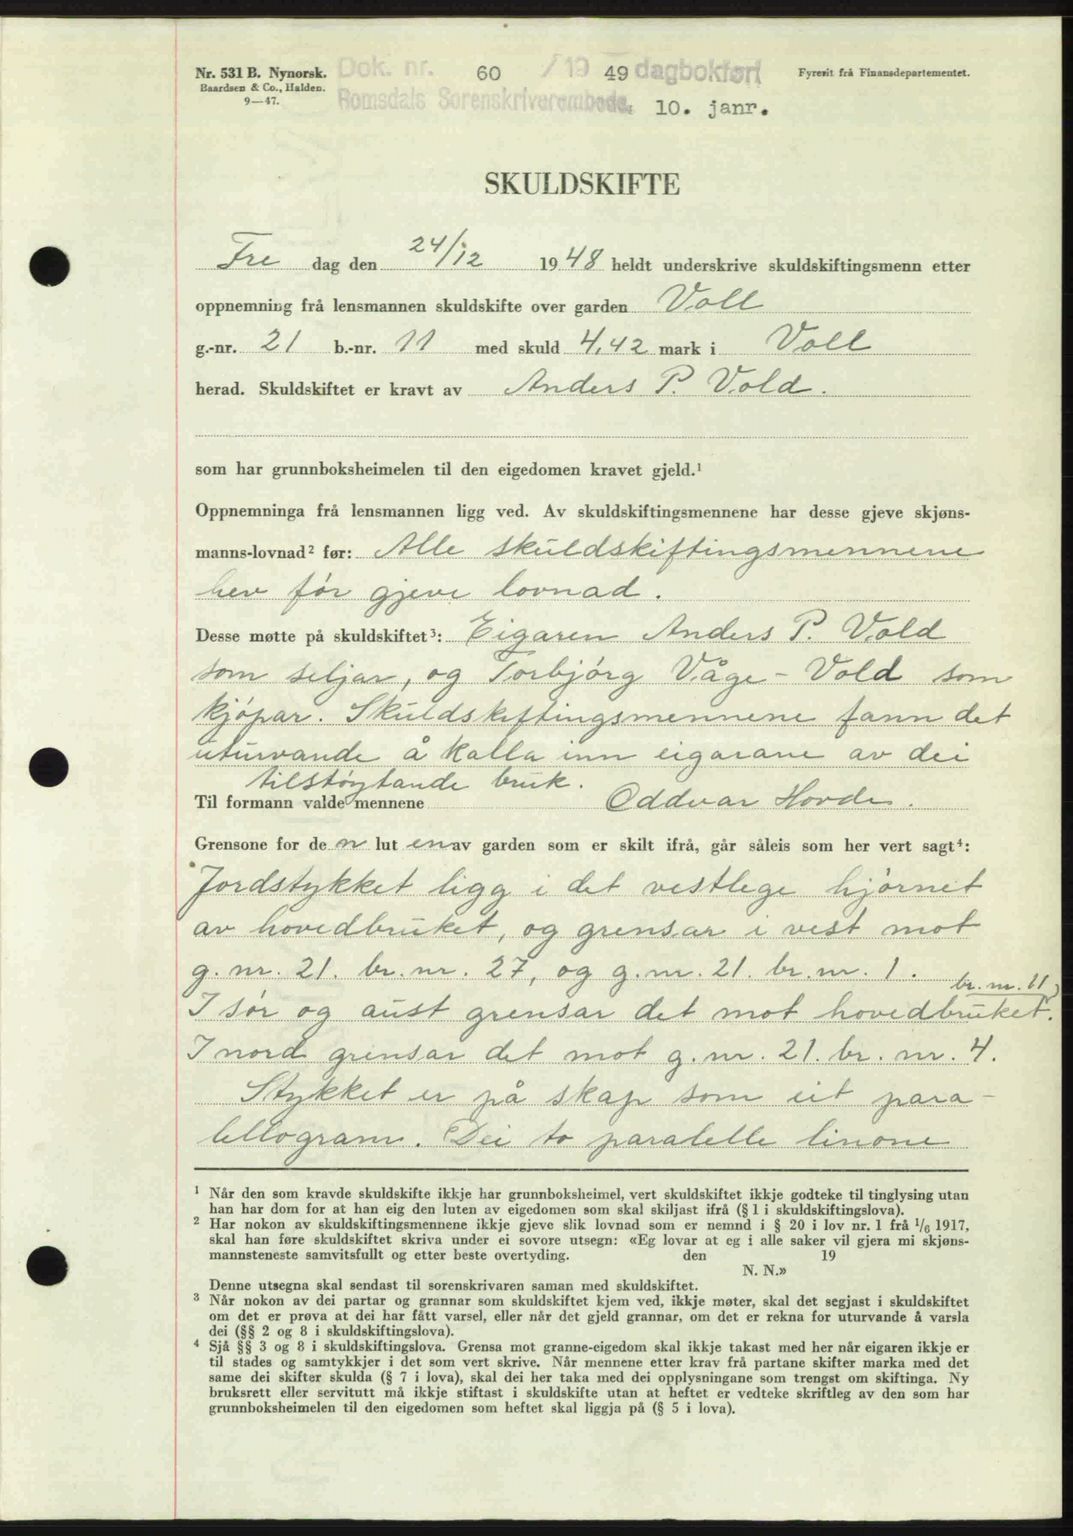 Nr. 531 B. Nynorsk.
Baardsen & Co., Halden.
9—47.
Dok. nr. 60 /19 49 dagbokført
Romsdals Sorenskriverembede, 10. janr.
Fyresit frå Finansdepartementet.
SKULDSKIFTE
Fre dag den 24/12 1948 heldt underskrive skuldskiftingsmenn etter
oppnemning frå lensmannen skuldskifte over garden Voll
g.-nr. 21 b.-nr. 11 med skuld 4,42 mark i Voll
herad. Skuldskiftet er kravt av Anders P. Vold.
som har grunnboksheimelen til den eigedomen kravet gjeld.¹
Oppnemninga frå lensmannen ligg ved. Av skuldskiftingsmennene har desse gjeve skjøns-
manns-lovnad² før: Alle skuldskiftingsmennene
hev før gjeve lovnad.
Desse møtte på skuldskiftet³: Eigaren Anders P. Vold
som seljar, og Torbjørg Våge - Vold som
kjøpar. Skuldskiftingsmennene fann det
uturvande å kalla inn eigarane av dei
tilstøytande bruk.
Til formann valde mennene Oddvar Hovde.
Grensone for den luten av garden som er skilt ifrå, går såleis som her vert sagt⁴:
Jordstykket ligg i det vestlege hjørnet
av hovedbruket, og grensar i vest mot
g. nr. 21. br. nr. 27, og g. nr. 21. br. nr. 1.
br. nr. 11,
I sør og aust grensar det mot hovedbruket.
I nord grensar det mot g. nr. 21. br. nr. 4.
Stykket er på skap som eit para-
lellogram. Dei to paralelle linone
¹ Når den som kravde skuldskifte ikkje har grunnboksheimel, vert skuldskiftet ikkje godteke til tinglysing utan
han har dom for at han eig den luten av eigedomen som skal skiljast ifrå (§ 1 i skuldskiftingslova).
² Har nokon av skuldskiftingsmennene ikkje gjeve slik lovnad som er nemnd i § 20 i lov nr. 1 frå 1/6 1917,
skal han føre skuldskiftet skriva under ei sovore utsegn: «Eg lovar at eg i alle saker vil gjera mi skjøns-
mannsteneste samvitsfullt og etter beste overtyding. den 19
N. N.»
Denne utsegna skal sendast til sorenskrivaren saman med skuldskiftet.
³ Når nokon av dei partar og grannar som skuldskiftet kjem ved, ikkje møter, skal det segjast i skuldskiftet
om det er prøva at dei har fått varsel, eller når det gjeld grannar, om det er rekna for uturvande å varsla
dei (§§ 2 og 8 i skuldskiftingslova).
⁴ Sjå §§ 3 og 8 i skuldskiftingslova. Grensa mot granne-eigedom skal ikkje takast med her når eigaren ikkje er
til stades og samtykkjer i det som vert skrive. Når mennene etter krav frå partane skifter marka med det
same dei skifter skulda (§ 7 i lova), skal dei her taka med dei opplysningane som trengst om skiftinga. Ny
bruksrett eller servitutt må ikkje stiftast i skuldskifte utan at heftet er vedteke skriftleg av den som har
grunnboksheimelen til den eigedomen som heftet skal liggja på (§ 5 i lova).